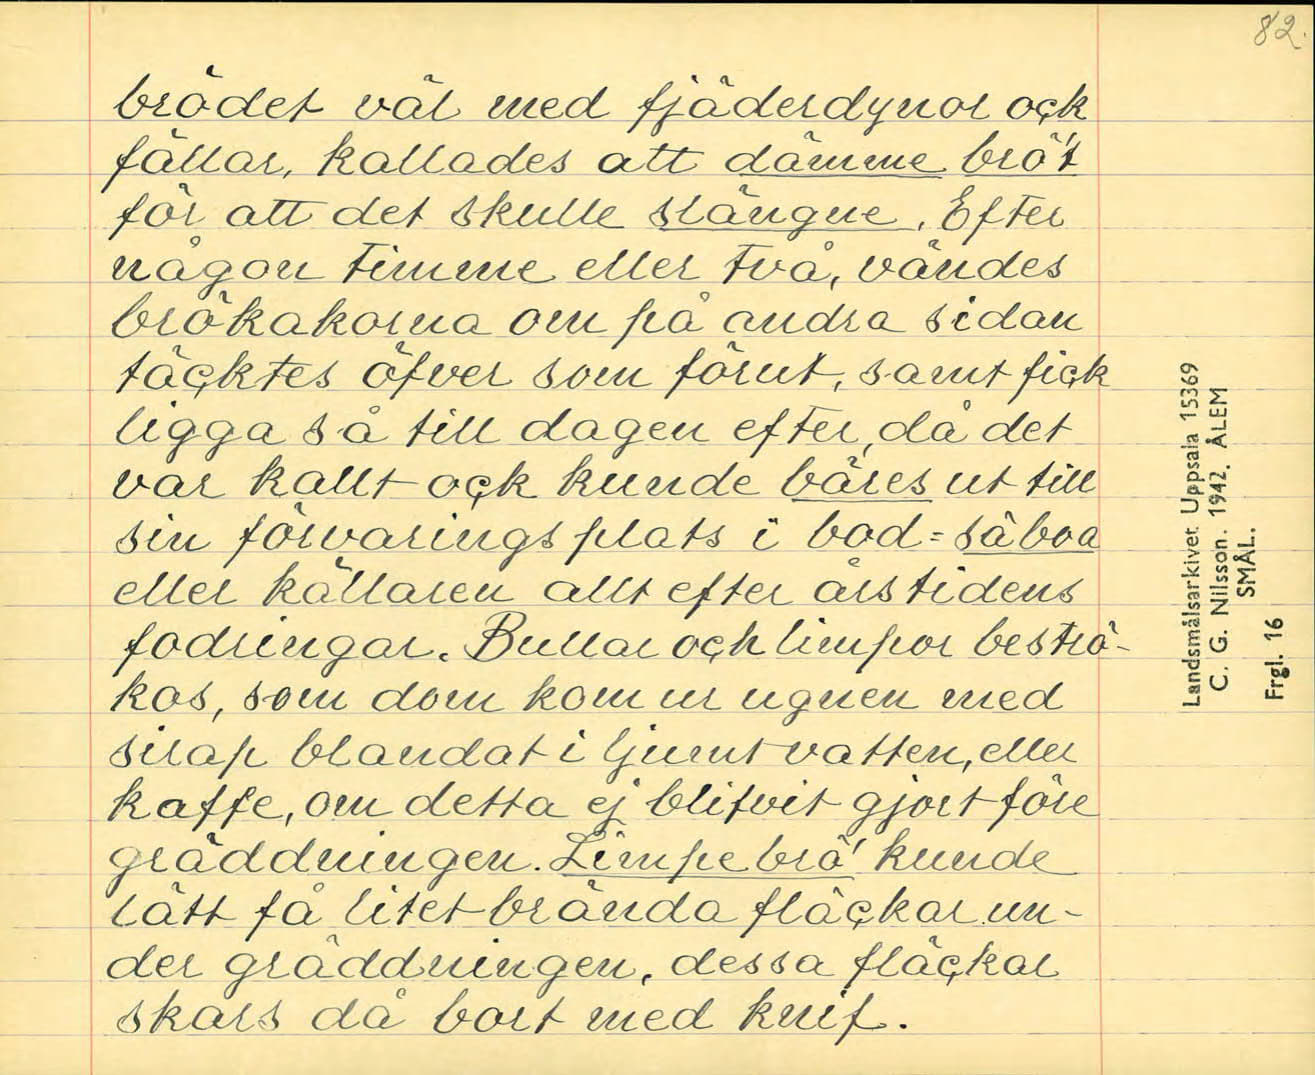 82.
brödet väl med fjäderdynor ock
fällar, kallades att dämme brö't
för att det skulle slängne. Efter
någon timme eller två, vändes
brökakorna om på andra sidan
täcktes öfver som förut, samt fick
ligga så till dagen efter, då det
var kallt ock kunde bäres ut till
sin förvaringsplats i bod=säboa
eller källaren allt efter årstidens
fodringar. Bullar och limpor beströ-
kos, som dom kom ur ugnen med
sirap blandat i ljumt vatten, eller
kaffe, om detta ej blifvit gjort före
gräddningen. Limpebrö' kunde
lätt få litet brända fläckar un-
der gräddningen, dessa fläckar
skars då bort med knif.
Landsmålsarkivet Uppsala 15369
C. G. Nilsson. 1942. ÅLEM
SMÅL.
Frgl. 16